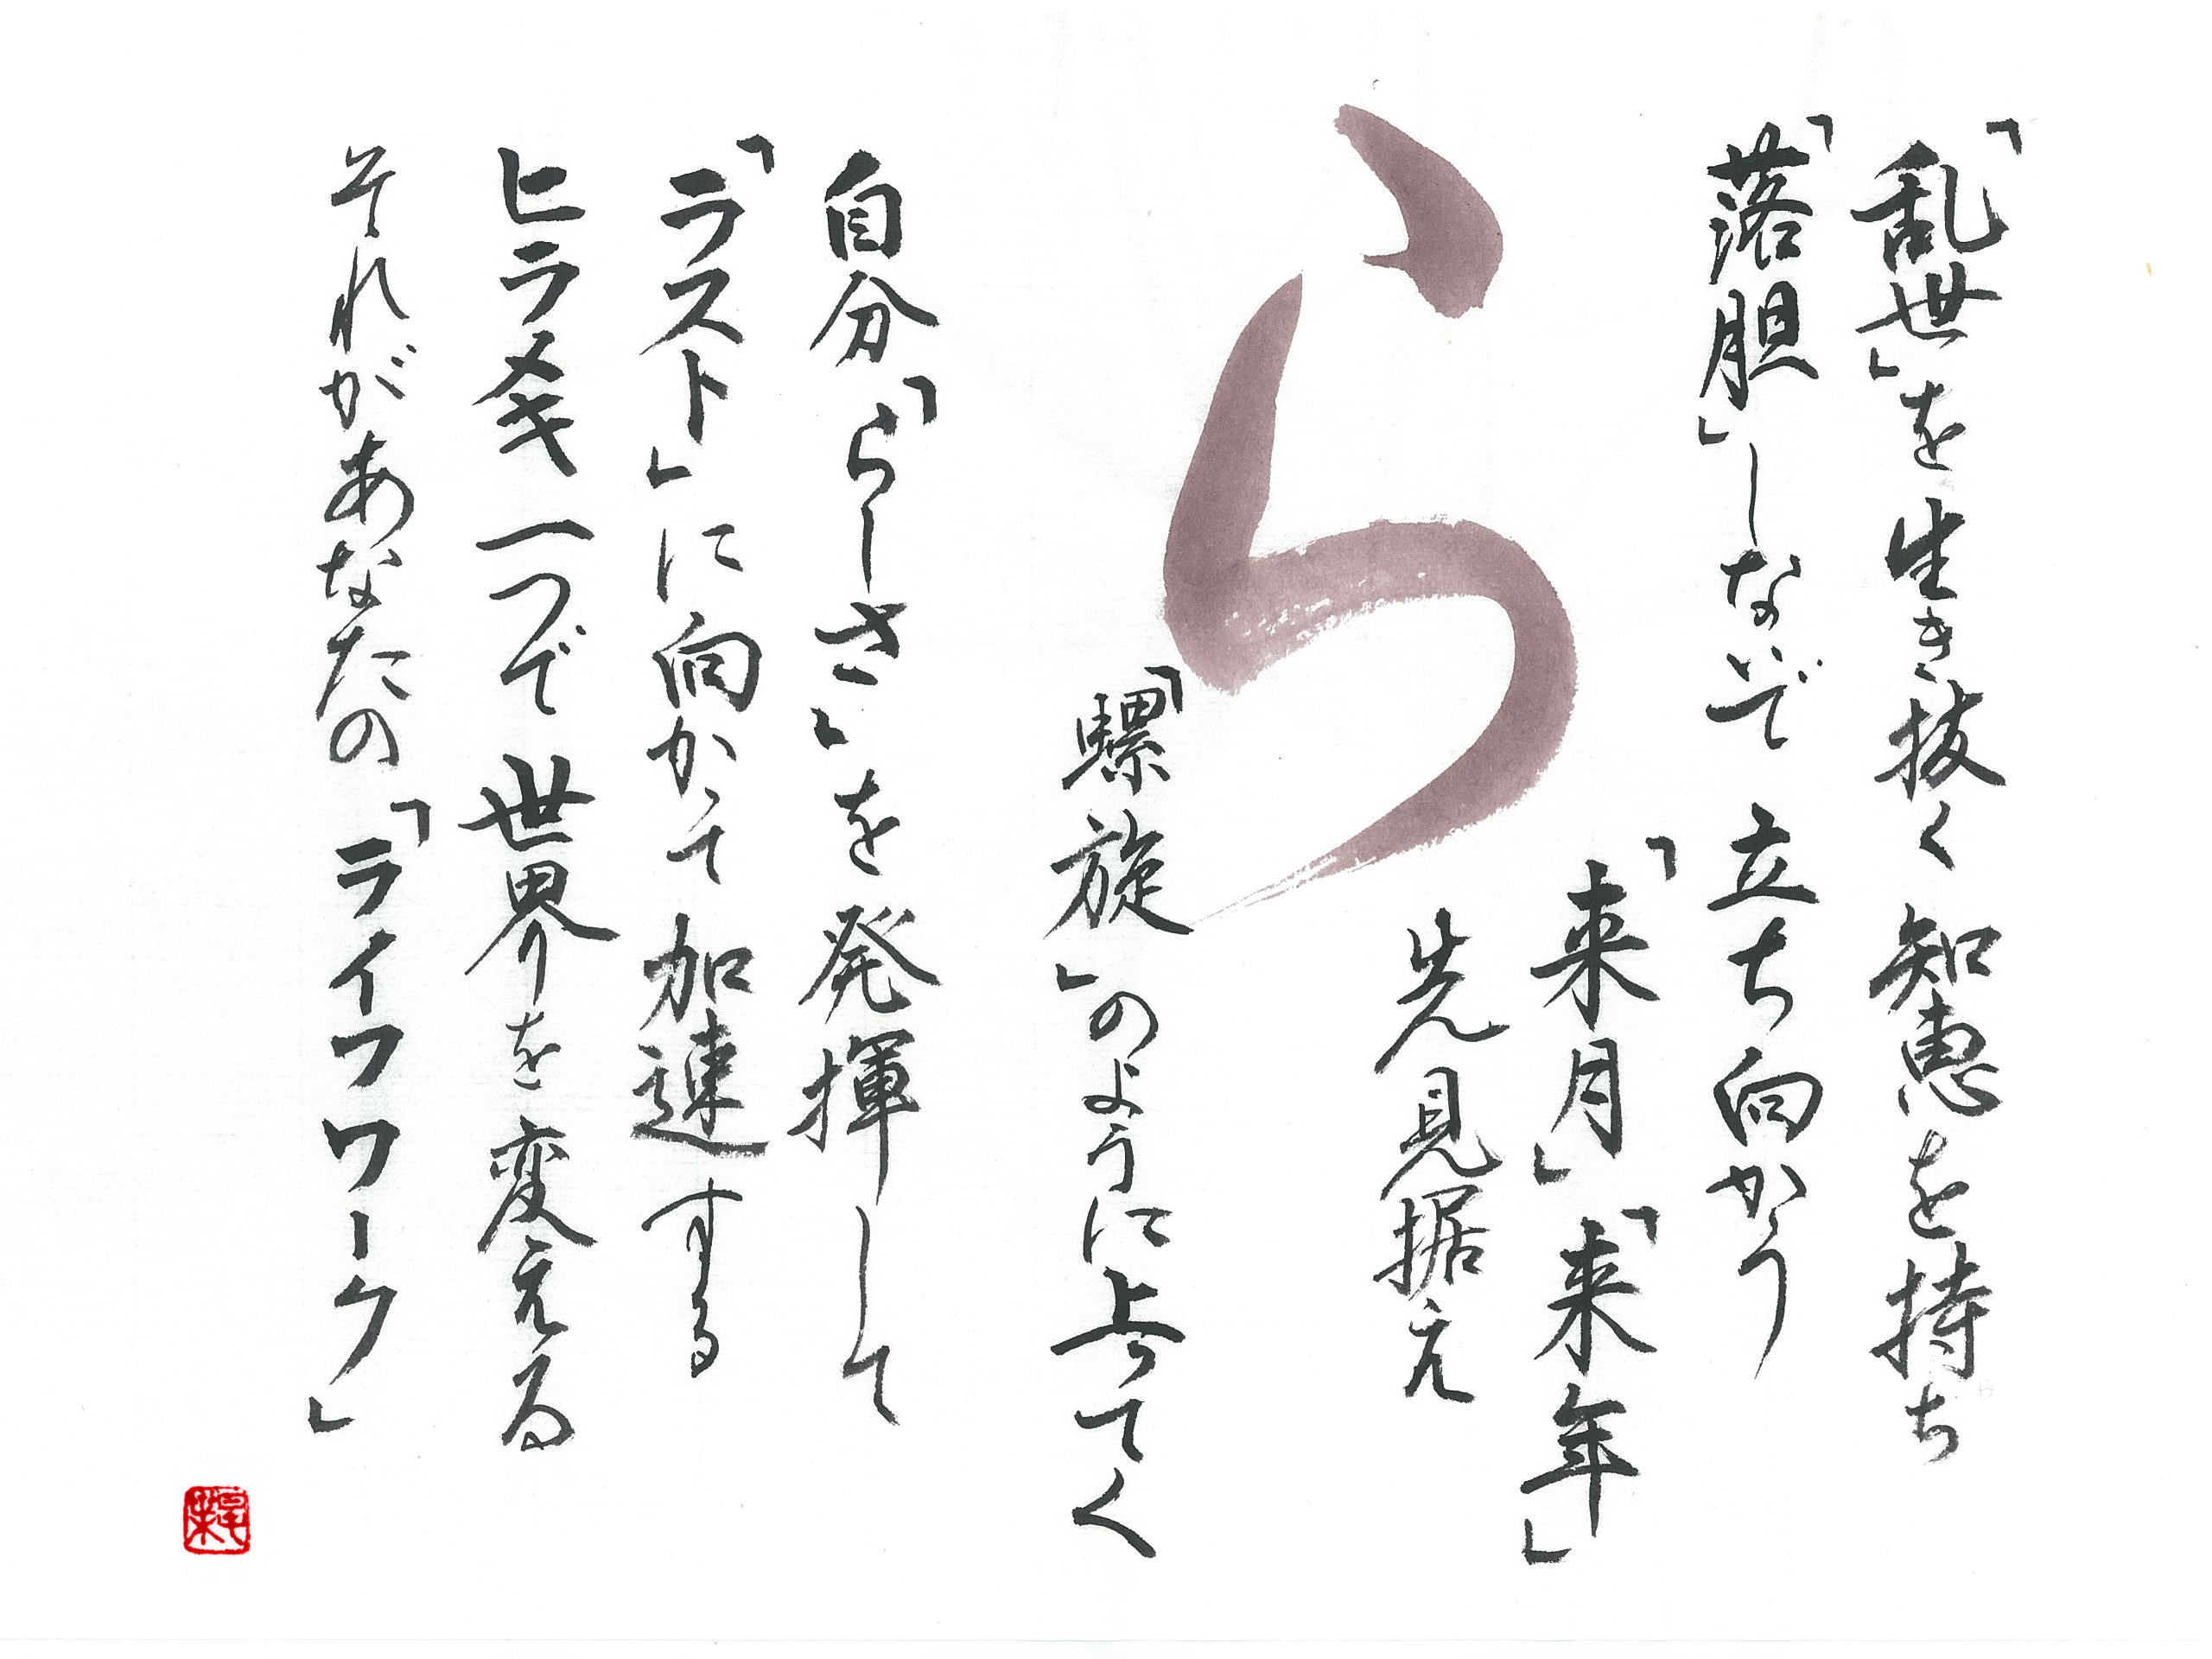 「乱世」を生き抜く知恵を持ち
「落胆」しないで立ち向かう
「来月」「来年」
先見据え
ら
「螺旋」のように上ってく
自分「らしさ」を発揮して
「ラスト」に向かって加速する
ヒラメキ一つで世界を変える
それがあなたの「ライフワーク」